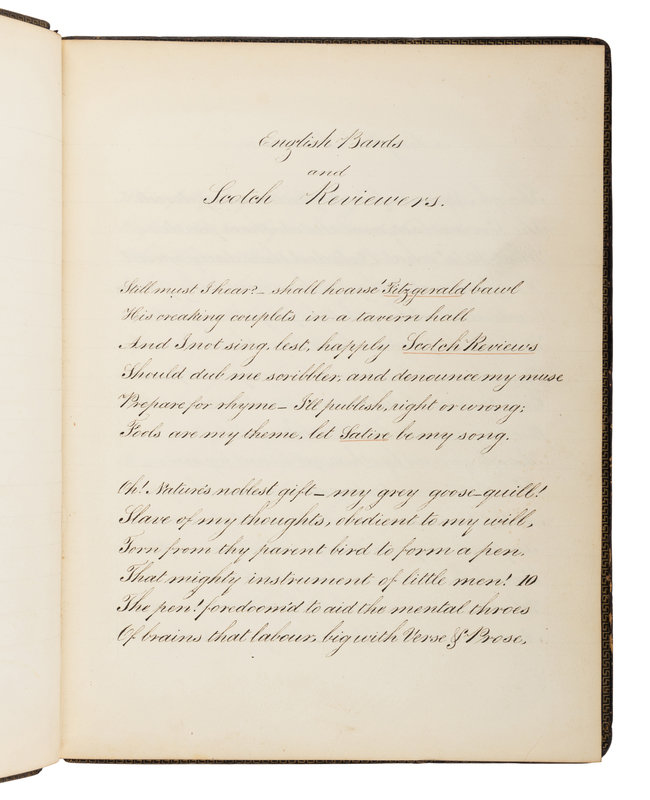 English Bards
and
Scotch Reviewers.
Still must I hear?– shall hoarse' Fitzgerald bawl
His creaking couplets in a tavern hall
And I not sing, lest, happly Scotch Reviews
Should dub me scribbler, and denounce my muse
Prepare for rhyme– I'll publish, right or wrong;
Fools are my theme, let Satire be my song.
Oh! Nature's noblest gift– my grey goose-quill!
Slave of my thoughts, obedient to my will,
Torn from thy parent bird to form a pen,
That mighty instrument of little men! 10
The pen! foredoom'd to aid the mental throes
Of brains that labour, big with Verse & Prose,